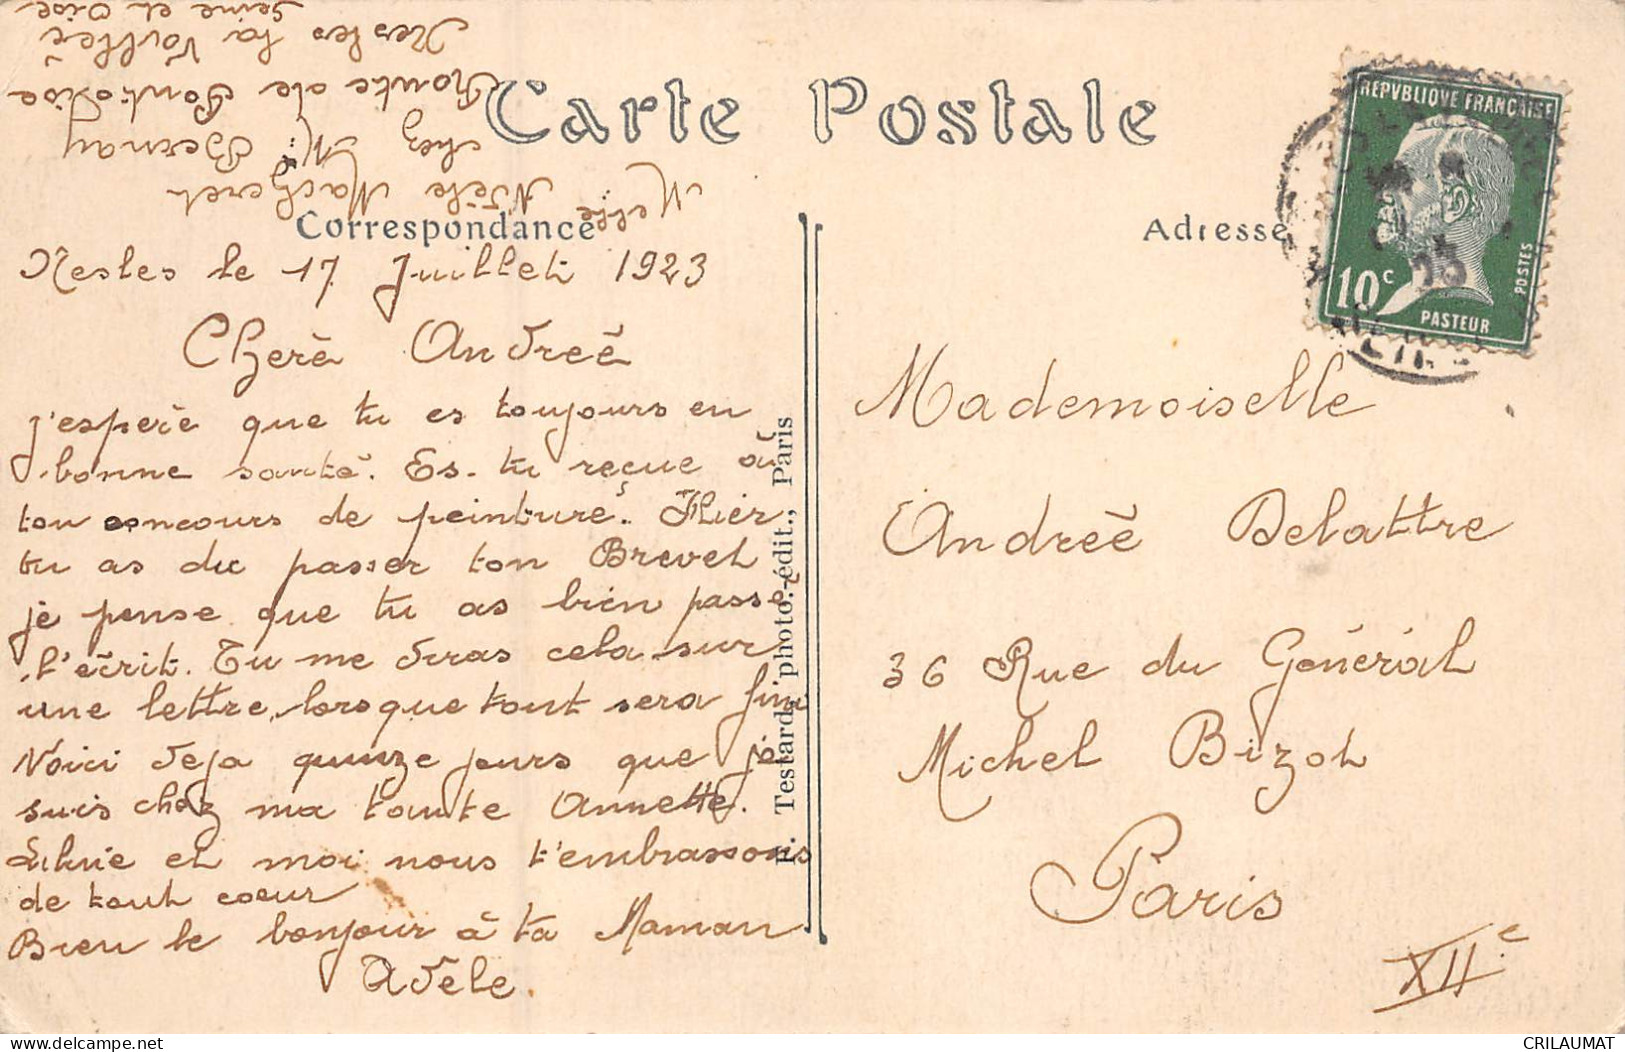 Carte Postale
Correspondance
Adresse
Melle Adèle Macherel
chez M. Bernay
Route de Pontoise
Nesles la Vallée
Seine et Oise
Nesles le 17 Juillet 1923
Chère Andrée
j'espère que tu es toujours en
bonne santé. Es-tu reçue à
ton concours de peinture. Hier
tu as du passer ton Brevet
je pense que tu as bien passé
l'écrit. Tu me diras cela sur
une lettre lorsque tout sera fini
Voici deja quinze jours que je
suis chez ma tante Annette.
et moi nous t'embrassons
de tout coeur
Bien le bonjour à ta Maman
Adèle.
F. Testard, photo.-édit., Paris
REPVBLIQVE FRANÇAISE
10c
POSTES
PASTEUR
23
Mademoiselle
Andrée Delattre
36 Rue du Général
Michel Bizot
Paris
XIIe
CRILAUMAT